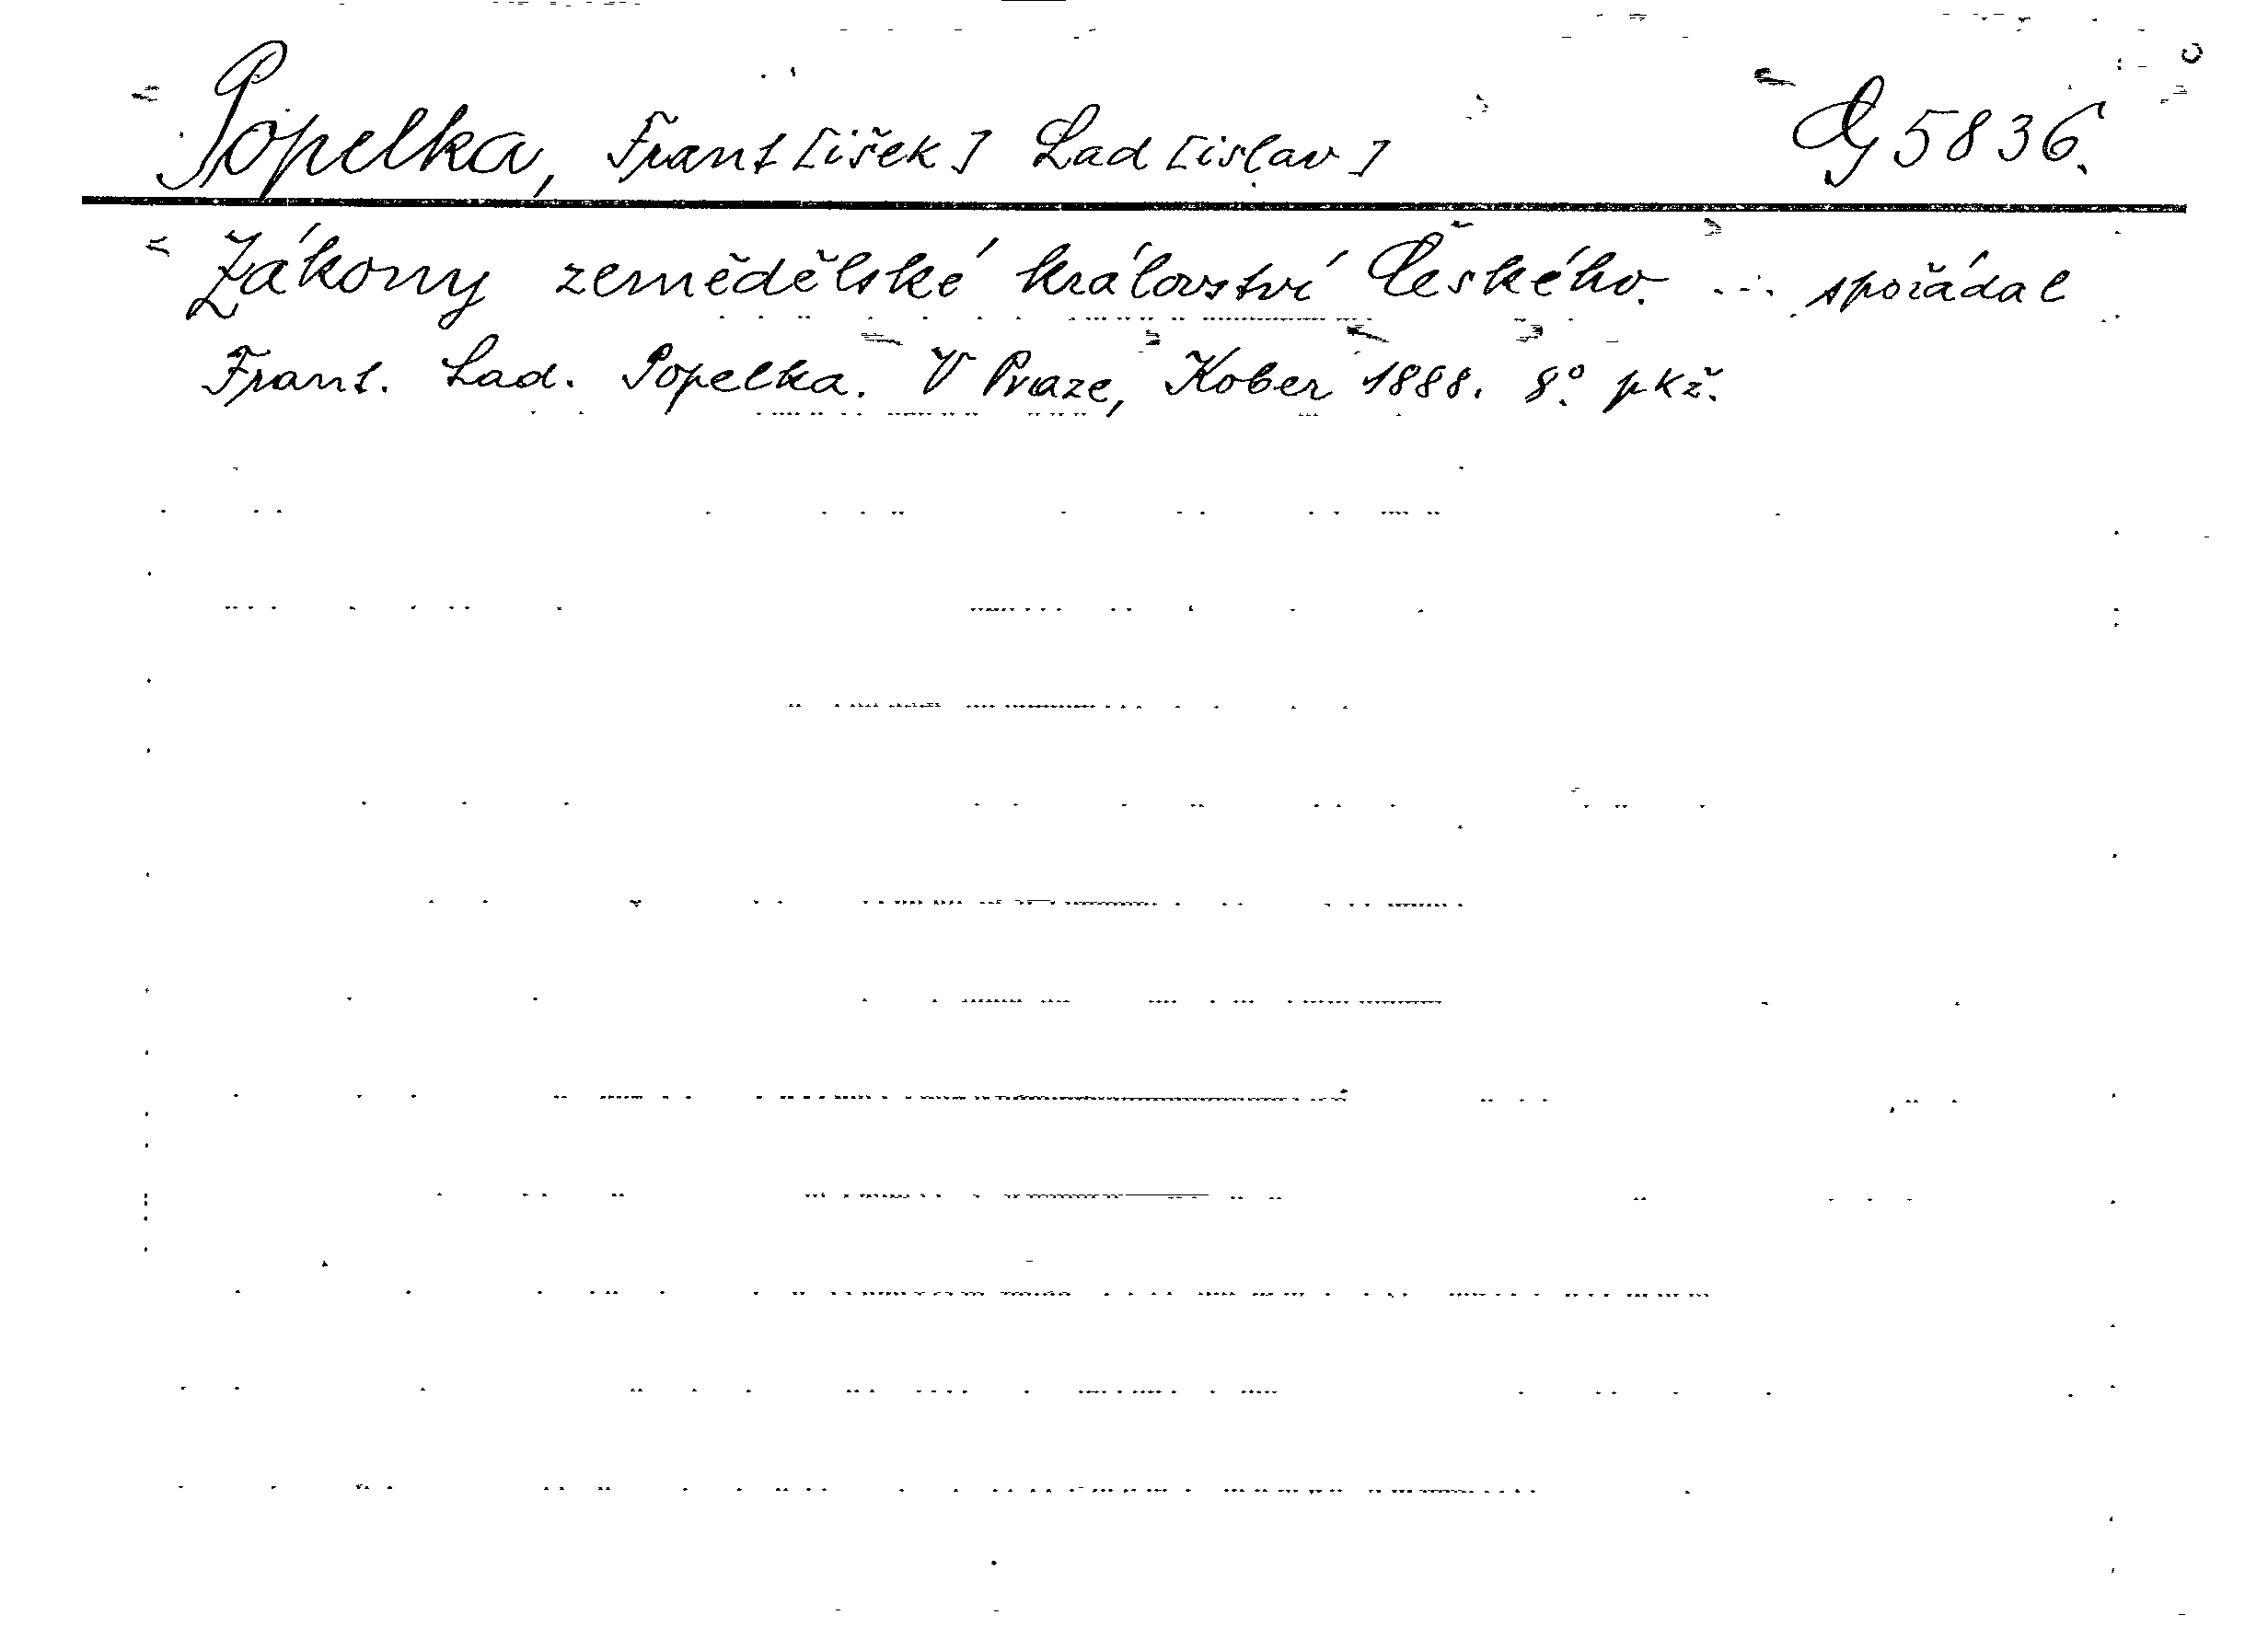 Popelka, Frant[išek] Lad[islav] Cg 5836.
Zákony zemědělské království Českého. ... spořádal
Frant. Lad. Popelka. V Praze, Kober 1888. 8º. pkž.